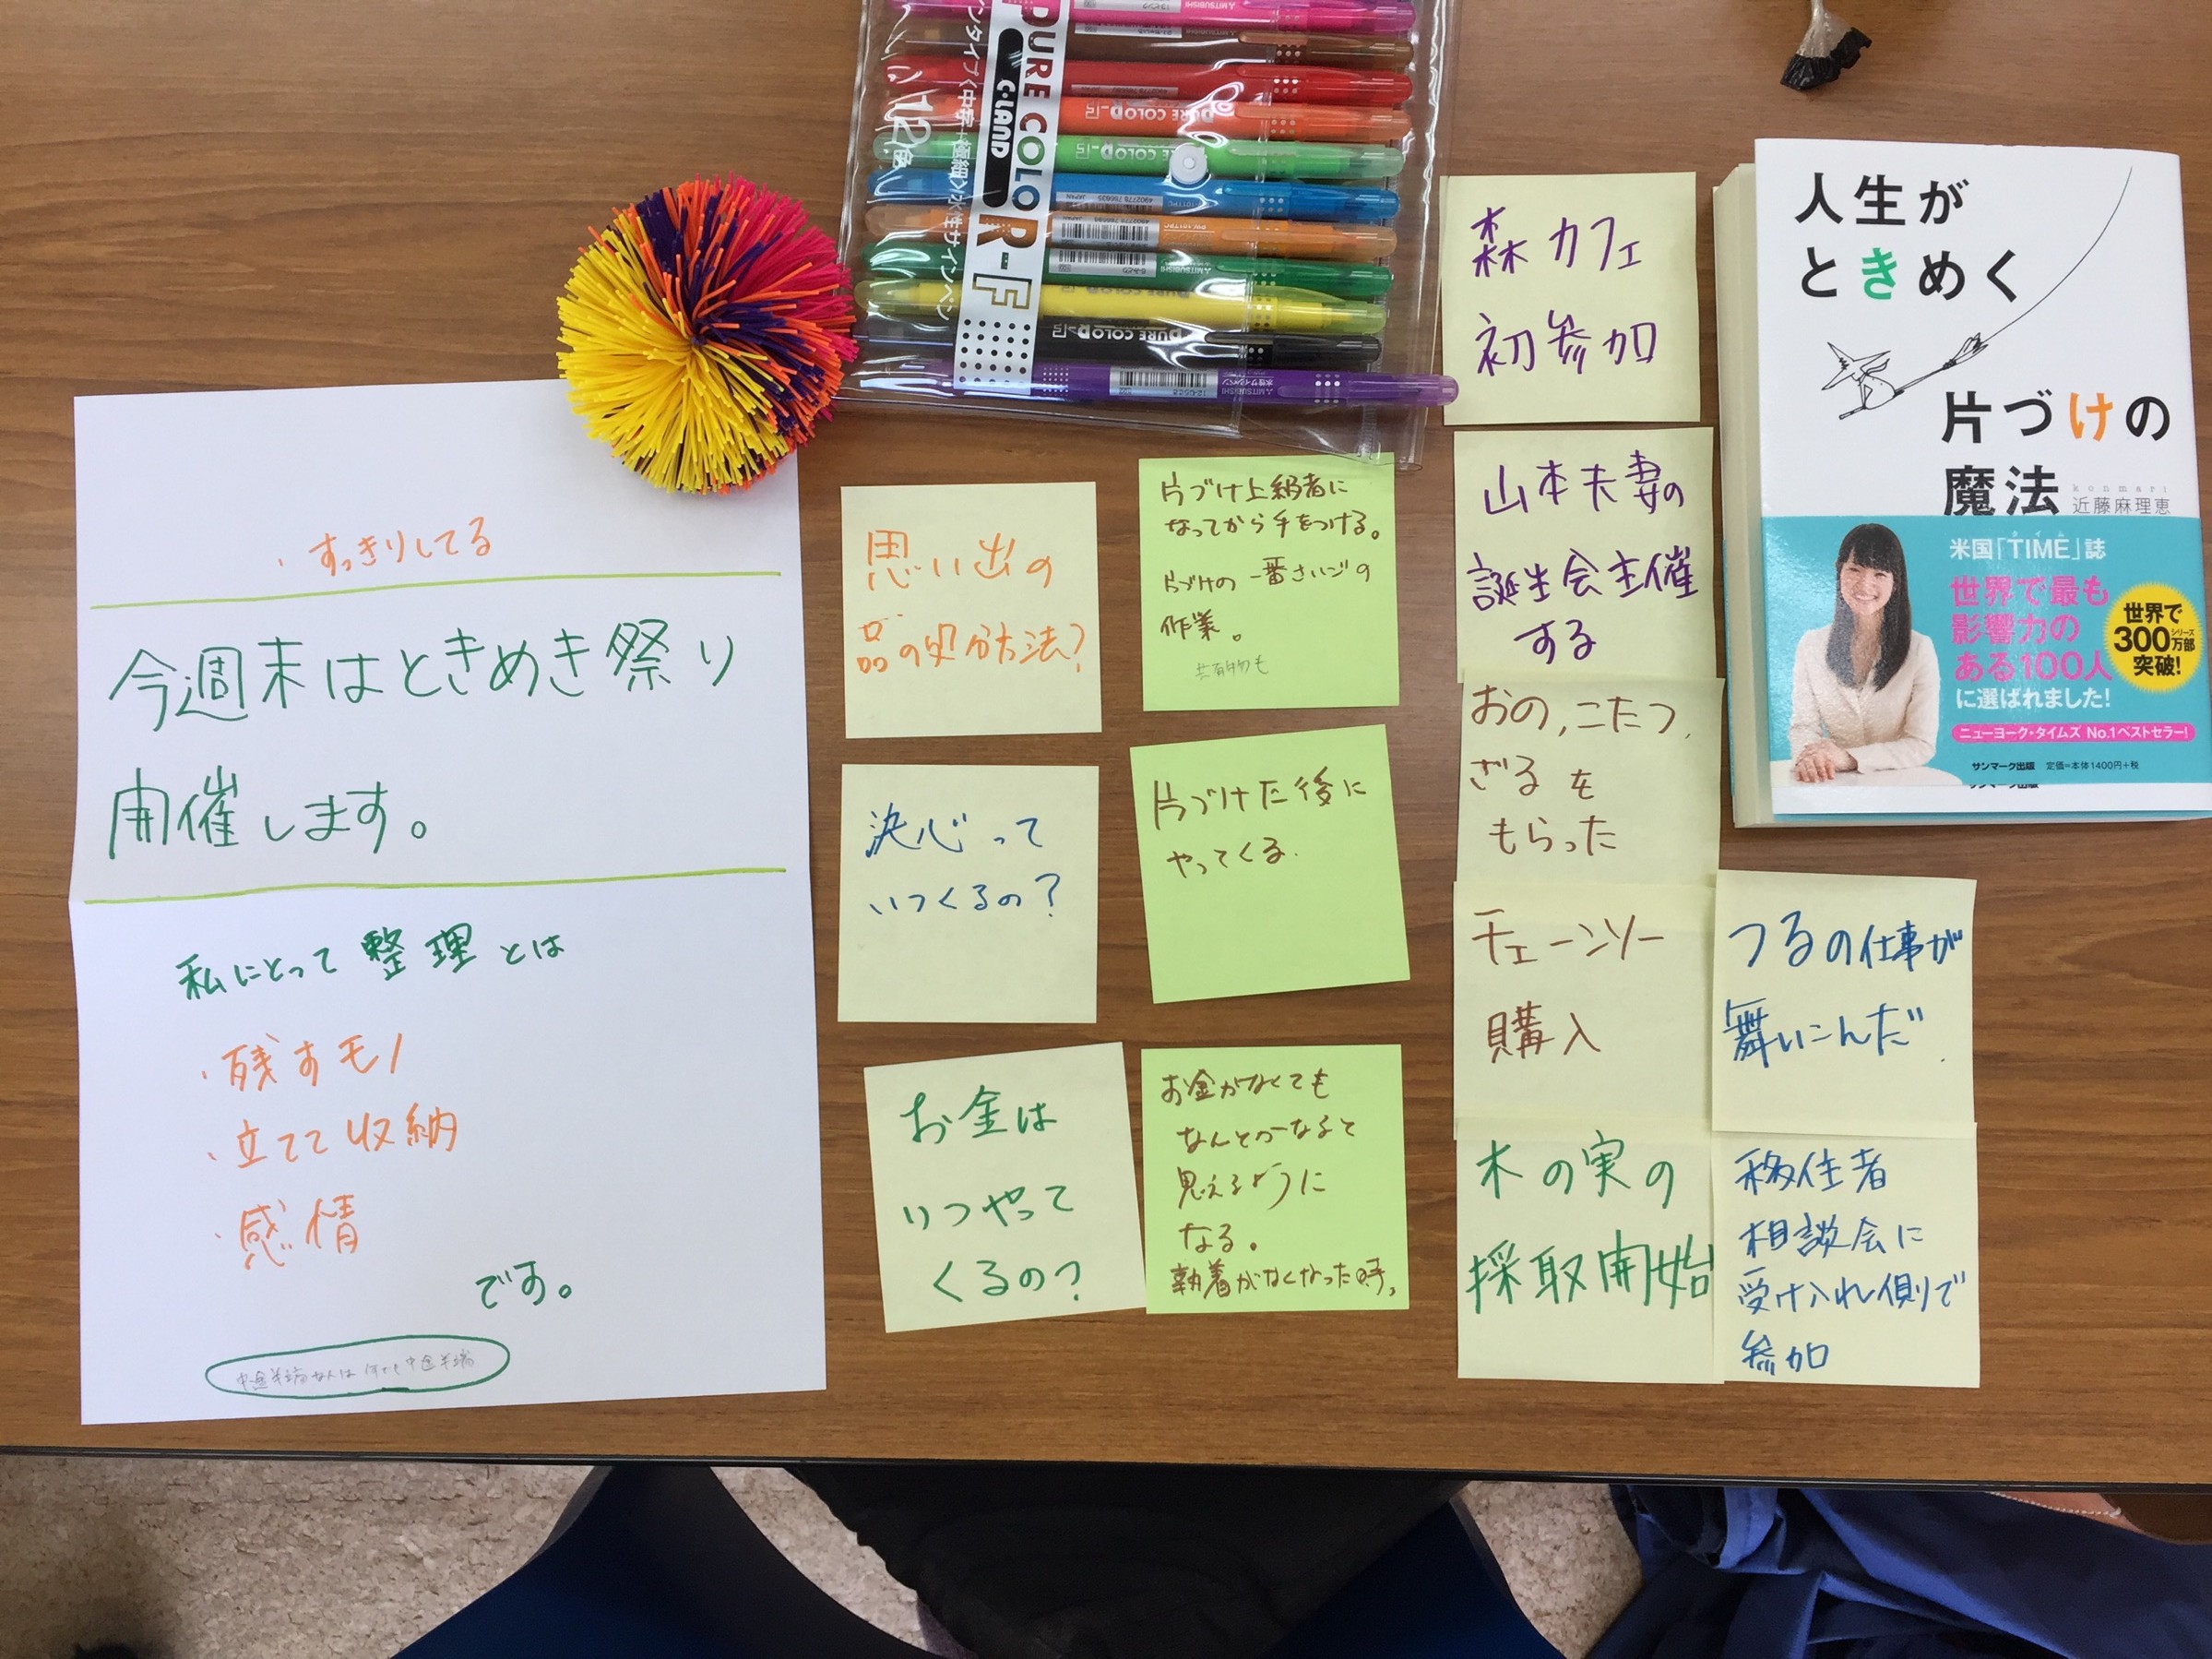 ・すっきりしてる
今週末はときめき祭り
開催します。
私にとって整理とは
・残すモノ
・立てて収納
・感情
です。
PURE COLOR-F
C-LAND
12色
水性サインペン
MITSUBISHI
PURE COLOR-F
思い出の
品の処分方法?
決心って
いつくるの?
お金は
いつやって
くるの?
片づけ上級者に
なってから手をつける。
片づけの一番さいごの
作業。
共有物も
片づけた後に
やってくる.
お金がなくても
なんとかなると
思えるように
なる。
執着がなくなった時。
森カフェ
初参加
山本夫妻の
誕生会主催
する
おの,こたつ,
ざるを
もらった
チェーンソー
購入
木の実の
採取開始
つるの仕事が
舞いこんだ.
移住者
相談会に
受け入れ側で
参加
人生が
ときめく
片づけの
魔法
konmari
近藤麻理恵
米国「TIME」誌
タイム
世界で最も
影響力の
ある100人
に選ばれました!
世界で
シリーズ
300万部
突破!
ニューヨーク・タイムズ No.1ベストセラー!
サンマーク出版 定価=本体1400円+税
サンマーク出版